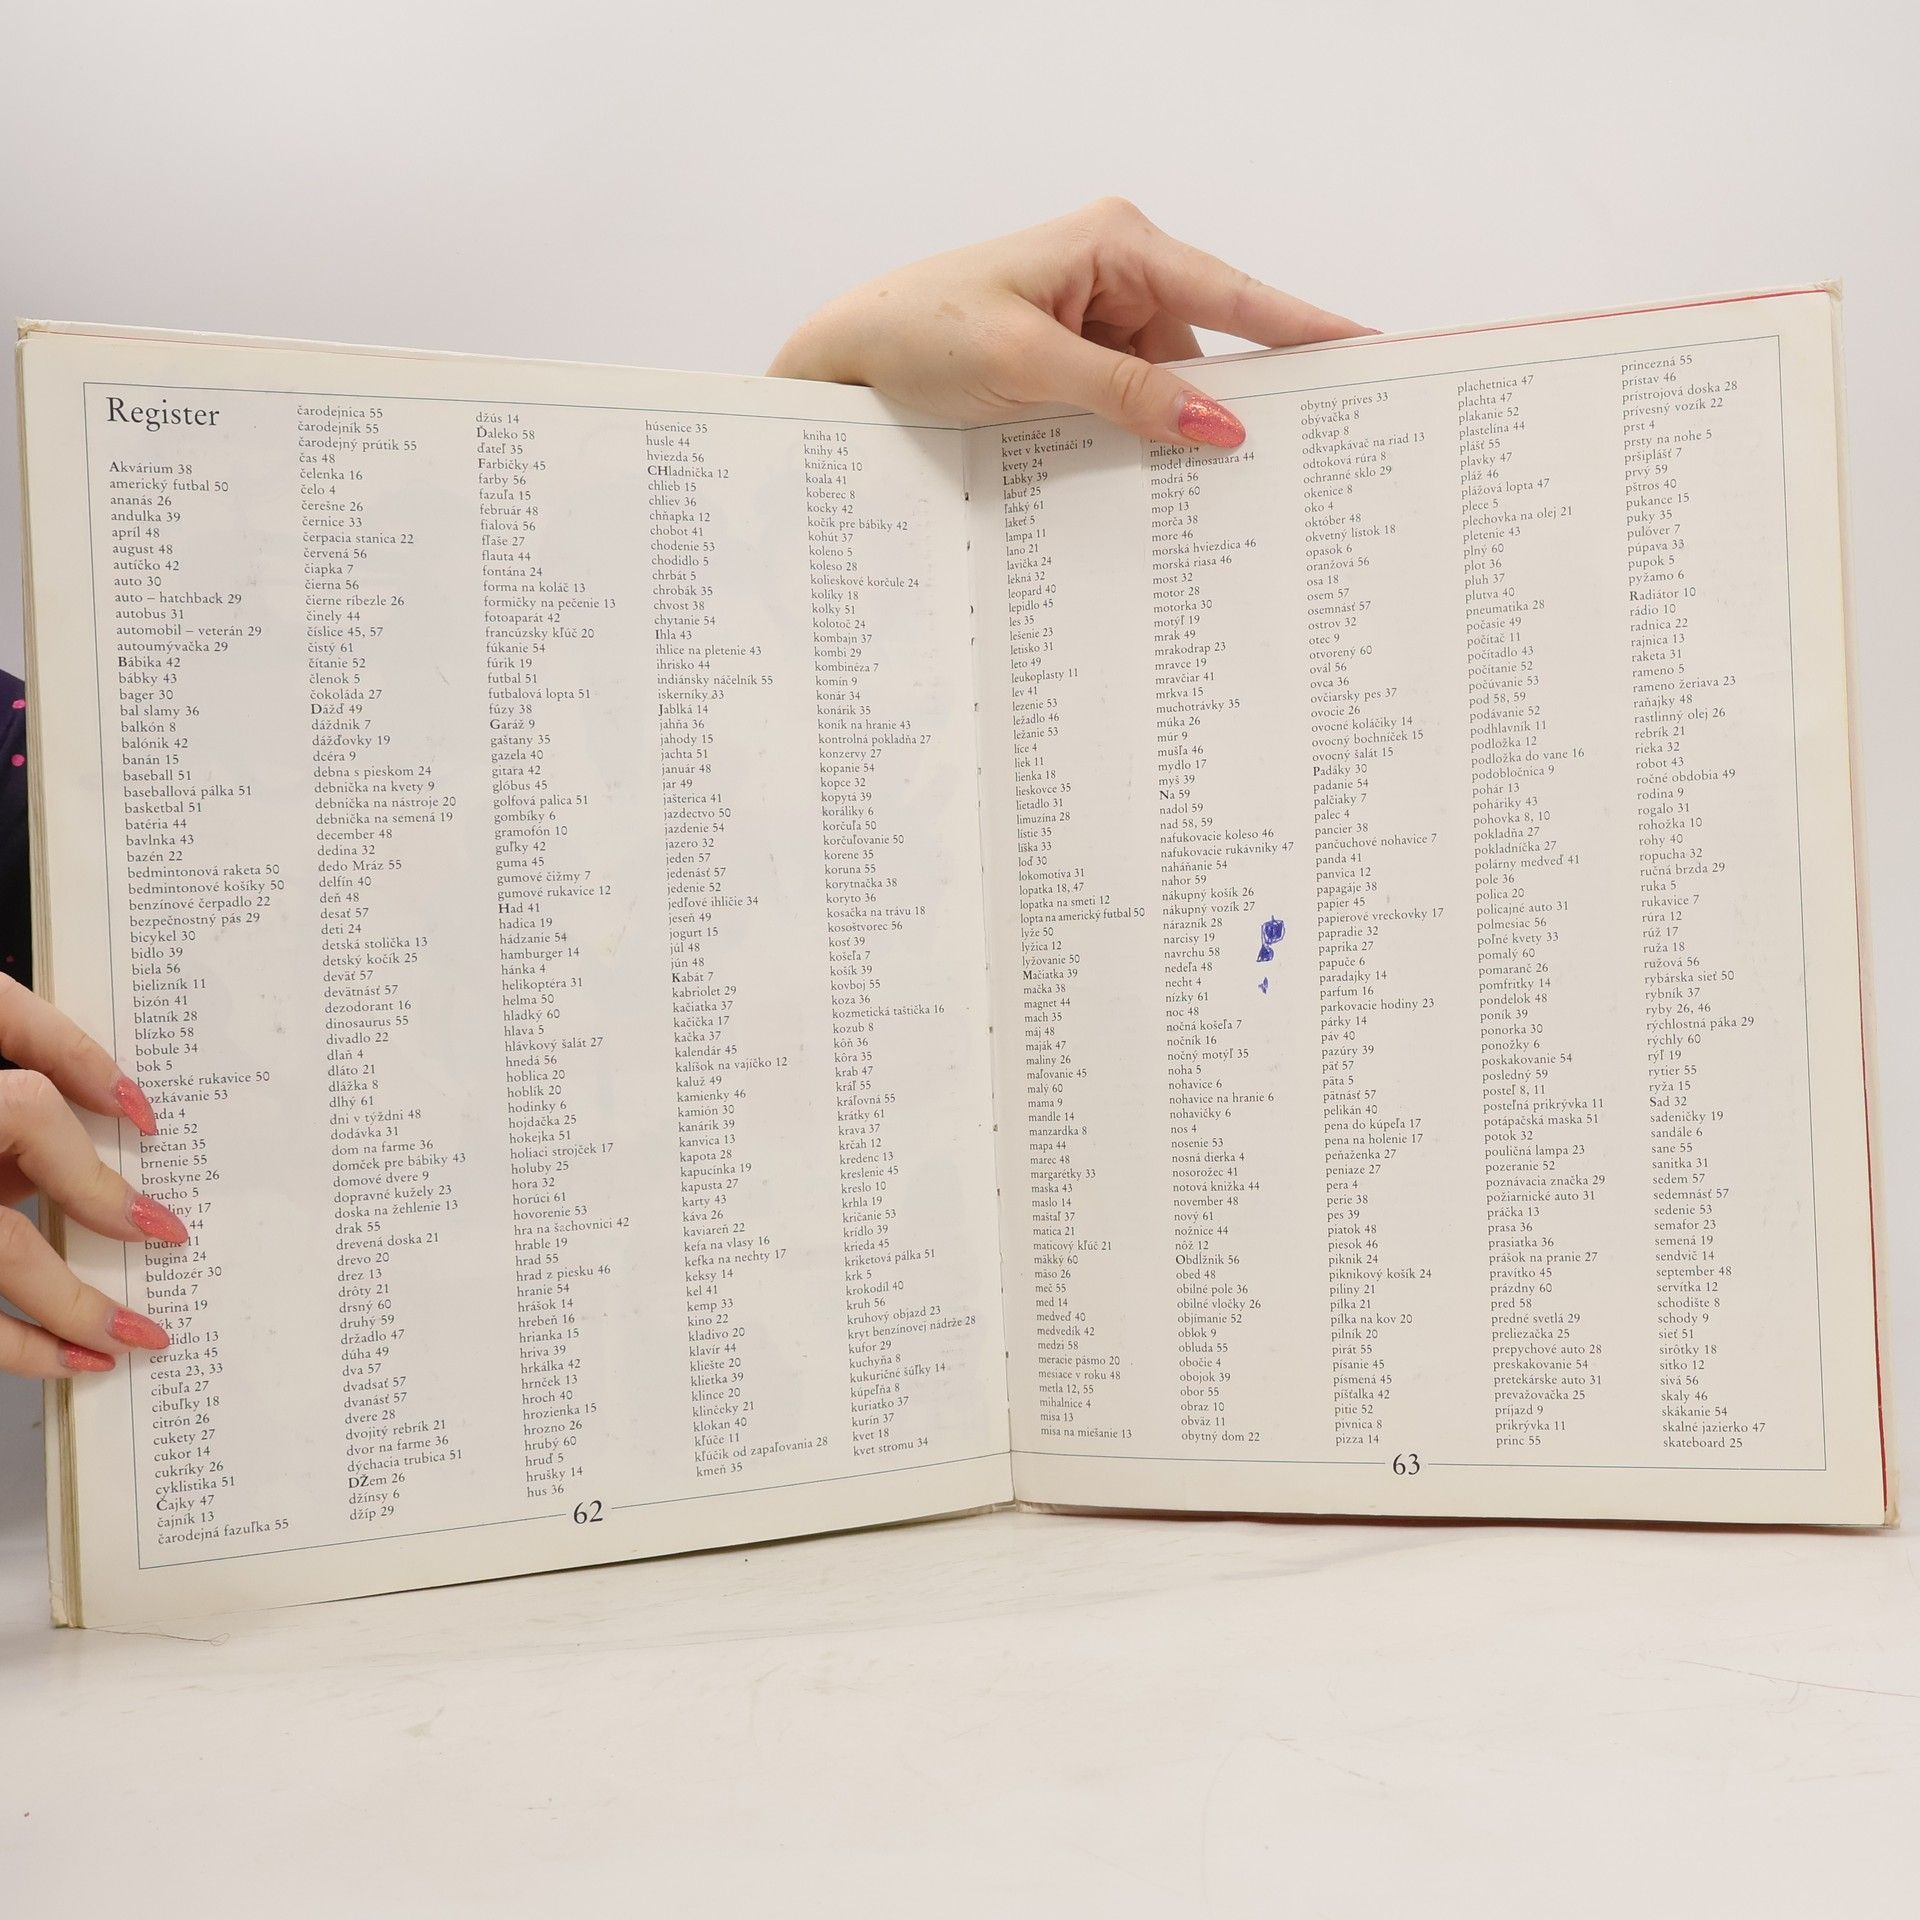 Register
Akvárium 38
americký futbal 50
ananás 26
andulka 39
apríl 48
august 48
autíčko 42
auto 30
auto – hatchback 29
autobus 31
automobil – veterán 29
autoumývačka 29
Bábika 42
bábky 43
bager 30
bal slamy 36
balkón 8
balónik 42
banán 15
baseball 51
baseballová pálka 51
basketbal 51
batéria 44
bavlnka 43
bazén 22
bedmintonová raketa 50
bedmintonové košíky 50
benzínové čerpadlo 22
bezpečnostný pás 29
bicykel 30
bidlo 39
biela 56
bielizník 11
bizón 41
blatník 28
blízko 58
bobule 34
bok 5
boxerské rukavice 50
53
4
52
brečtan 35
brnenie 55
broskyne 26
brucho 5
17
44
11
bugina 24
buldozér 30
bunda 7
burina 19
37
13
ceruzka 45
cesta 23, 33
cibuľa 27
cibuľky 18
citrón 26
cukety 27
cukor 14
cukríky 26
cyklistika 51
Čajky 47
čajník 13
čarodejná fazuľka 55
čarodejnica 55
čarodejník 55
čarodejný prútik 55
čas 48
čelenka 16
čelo 4
čerešne 26
černice 33
čerpacia stanica 22
červená 56
čiapka 7
čierna 56
čierne ríbezle 26
činely 44
číslice 45, 57
čistý 61
čítanie 52
členok 5
čokoláda 27
Dážď 49
dáždnik 7
dážďovky 19
dcéra 9
debna s pieskom 24
debnička na kvety 9
debnička na nástroje 20
debnička na semená 19
december 48
dedina 32
dedo Mráz 55
delfín 40
deň 48
desať 57
deti 24
detská stolička 13
detský kočík 25
deväť 57
devätnásť 57
dezodorant 16
dinosaurus 55
divadlo 22
dlaň 4
dláto 21
dlážka 8
dlhý 61
dni v týždni 48
dodávka 31
dom na farme 36
domček pre bábiky 43
domové dvere 9
dopravné kužely 23
doska na žehlenie 13
drak 55
drevená doska 21
drevo 20
drez 13
drôty 21
drsný 60
druhý 59
držadlo 47
dúha 49
dva 57
dvadsať 57
dvanásť 57
dvere 28
dvojitý rebrík 21
dvor na farme 36
dýchacia trubica 51
DŽem 26
džínsy 6
džíp 29
džús 14
Ďaleko 58
ďateľ 35
Farbičky 45
farby 56
fazuľa 15
február 48
fialová 56
fľaše 27
flauta 44
fontána 24
forma na koláč 13
formičky na pečenie 13
fotoaparát 42
francúzsky kľúč 20
fúkanie 54
fúrik 19
futbal 51
futbalová lopta 51
fúzy 38
Garáž 9
gaštany 35
gazela 40
gitara 42
glóbus 45
golfová palica 51
gombíky 6
gramofón 10
guľky 42
guma 45
gumové čižmy 7
gumové rukavice 12
Had 41
hadica 19
hádzanie 54
hamburger 14
hánka 4
helikoptéra 31
helma 50
hladký 60
hlava 5
hlávkový šalát 27
hnedá 56
hoblica 20
hoblík 20
hodinky 6
hojdačka 25
hokejka 51
holiaci strojček 17
holuby 25
hora 32
horúci 61
hovorenie 53
hra na šachovnici 42
hrable 19
hrad 55
hrad z piesku 46
hranie 54
hrášok 14
hrebeň 16
hrianka 15
hriva 39
hrkálka 42
hrnček 13
hroch 40
hrozienka 15
hrozno 26
hrubý 60
hruď 5
hrušky 14
hus 36
húsenice 35
husle 44
hviezda 56
CHladnička 12
chlieb 15
chliev 36
chňapka 12
chobot 41
chodenie 53
chodidlo 5
chrbát 5
chrobák 35
chvost 38
chytanie 54
Ihla 43
ihlice na pletenie 43
ihrisko 44
indiánsky náčelník 55
iskerníky 33
Jablká 14
jahňa 36
jahody 15
jachta 51
január 48
jar 49
jašterica 41
jazdectvo 50
jazdenie 54
jazero 32
jeden 57
jedenásť 57
jedenie 52
jedľové ihličie 34
jeseň 49
jogurt 15
júl 48
jún 48
Kabát 7
kabriolet 29
kačiatka 37
kačička 17
kačka 37
kalendár 45
kalíšok na vajíčko 12
kaluž 49
kamienky 46
kamión 30
kanárik 39
kanvica 13
kapota 28
kapucínka 19
kapusta 27
karty 43
káva 26
kaviareň 22
kefa na vlasy 16
kefka na nechty 17
keksy 14
kel 41
kemp 33
kino 22
kladivo 20
klavír 44
kliešte 20
klietka 39
klince 20
klinčeky 21
klokan 40
kľúče 11
kľúčik od zapaľovania 28
kmeň 35
kniha 10
knihy 45
knižnica 10
koala 41
koberec 8
kocky 42
kočík pre bábiky 42
kohút 37
koleno 5
koleso 28
kolieskové korčule 24
kolíky 18
kolky 51
kolotoč 24
kombajn 37
kombi 29
kombinéza 7
komín 9
konár 34
konárik 35
koník na hranie 43
kontrolná pokladňa 27
konzervy 27
kopanie 54
kopce 32
kopytá 39
koráliky 6
korčuľa 50
korčuľovanie 50
korene 35
koruna 55
korytnačka 38
koryto 36
kosačka na trávu 18
kosoštvorec 56
kosť 39
košeľa 7
košík 39
kovboj 55
koza 36
kozmetická taštička 16
kozub 8
kôň 36
kôra 35
krab 47
kráľ 55
kráľovná 55
krátky 61
krava 37
krčah 12
kredenc 13
kreslenie 45
kreslo 10
krhla 19
kričanie 53
krídlo 39
krieda 45
kriketová pálka 51
krk 5
krokodíl 40
kruh 56
kruhový objazd 23
kryt benzínovej nádrže 28
kufor 29
kuchyňa 8
kukuričné šúľky 14
kúpeľňa 8
kuriatko 37
kurín 37
kvet 18
kvet stromu 34
62
kvetináče 18
kvet v kvetináči 19
kvety 24
Labky 39
labuť 25
ľahký 61
lakeť 5
lampa 11
lano 21
lavička 24
lekná 32
leopard 40
lepidlo 45
les 35
lešenie 23
letisko 31
leto 49
leukoplasty 11
lev 41
lezenie 53
ležadlo 46
ležanie 53
líce 4
liek 11
lienka 18
lieskovce 35
lietadlo 31
limuzína 28
lístie 35
líška 33
loď 30
lokomotíva 31
lopatka 18, 47
lopatka na smeti 12
lopta na americký futbal 50
lyže 50
lyžica 12
lyžovanie 50
Mačiatka 39
mačka 38
magnet 44
mach 35
máj 48
maják 47
maliny 26
maľovanie 45
malý 60
mama 9
mandle 14
manzardka 8
mapa 44
marec 48
margarétky 33
maska 43
maslo 14
maštaľ 37
matica 21
maticový kľúč 21
mäkký 60
mäso 26
meč 55
med 14
medveď 40
medvedík 42
medzi 58
meracie pásmo 20
mesiace v roku 48
metla 12, 55
mihalnice 4
misa 13
misa na miešanie 13
mlieko 14
model dinosauara 44
modrá 56
mokrý 60
mop 13
morča 38
more 46
morská hviezdica 46
morská riasa 46
most 32
motor 28
motorka 30
motýľ 19
mrak 49
mrakodrap 23
mravce 19
mravčiar 41
mrkva 15
muchotrávky 35
múka 26
múr 9
mušľa 46
mydlo 17
myš 39
Na 59
nadol 59
nad 58, 59
nafukovacie koleso 46
nafukovacie rukávniky 47
naháňanie 54
nahor 59
nákupný košík 26
nákupný vozík 27
nárazník 28
narcisy 19
navrchu 58
nedeľa 48
necht 4
nízky 61
noc 48
nočná košeľa 7
nočník 16
nočný motýľ 35
noha 5
nohavice 6
nohavice na hranie 6
nohavičky 6
nos 4
nosenie 53
nosná dierka 4
nosorožec 41
notová knižka 44
november 48
nový 61
nožnice 44
nôž 12
Obdĺžnik 56
obed 48
obilné pole 36
obilné vločky 26
objímanie 52
oblok 9
obluda 55
obočie 4
obojok 39
obor 55
obraz 10
obväz 11
obytný dom 22
obytný príves 33
obývačka 8
odkvap 8
odkvapkávač na riad 13
odtoková rúra 8
ochranné sklo 29
okenice 8
oko 4
október 48
okvetný lístok 18
opasok 6
oranžová 56
osa 18
osem 57
osemnásť 57
ostrov 32
otec 9
otvorený 60
ovál 56
ovca 36
ovčiarsky pes 37
ovocie 26
ovocné koláčiky 14
ovocný bochníček 15
ovocný šalát 15
Padáky 30
padanie 54
palčiaky 7
palec 4
pancier 38
pančuchové nohavice 7
panda 41
panvica 12
papagáje 38
papier 45
papierové vreckovky 17
papradie 32
paprika 27
papuče 6
paradajky 14
parfum 16
parkovacie hodiny 23
párky 14
páv 40
pazúry 39
päť 57
päta 5
pätnásť 57
pelikán 40
pena do kúpeľa 17
pena na holenie 17
peňaženka 27
peniaze 27
pera 4
perie 38
pes 39
piatok 48
piesok 46
piknik 24
piknikový košík 24
piliny 21
pílka 21
pílka na kov 20
pilník 20
pirát 55
písanie 45
písmená 45
píšťalka 42
pitie 52
pivnica 8
pizza 14
plachetnica 47
plachta 47
plakanie 52
plastelína 44
plášť 55
plavky 47
pláž 46
plážová lopta 47
plece 5
plechovka na olej 21
pletenie 43
plný 60
plot 36
pluh 37
plutva 40
pneumatika 28
počasie 49
počítač 11
počítadlo 43
počítanie 52
počúvanie 53
pod 58, 59
podávanie 52
podhlavník 11
podložka 12
podložka do vane 16
podobločnica 9
pohár 13
poháriky 43
pohovka 8, 10
pokladňa 27
pokladnička 27
polárny medveď 41
pole 36
polica 20
policajné auto 31
polmesiac 56
poľné kvety 33
pomalý 60
pomaranč 26
pomfritky 14
pondelok 48
poník 39
ponorka 30
ponožky 6
poskakovanie 54
posledný 59
posteľ 8, 11
posteľná prikrývka 11
potápačská maska 51
potok 32
pouličná lampa 23
pozeranie 52
poznávacia značka 29
požiarnické auto 31
práčka 13
prasa 36
prasiatka 36
prášok na pranie 27
pravítko 45
prázdny 60
pred 58
predné svetlá 29
preliezačka 25
prepychové auto 28
preskakovanie 54
pretekárske auto 31
prevažovačka 25
príjazd 9
prikrývka 11
princ 55
princezná 55
prístav 46
prístrojová doska 28
prívesný vozík 22
prst 4
prsty na nohe 5
pršiplášť 7
prvý 59
pštros 40
pukance 15
puky 35
pulóver 7
púpava 33
pupok 5
pyžamo 6
Radiátor 10
rádio 10
radnica 22
rajnica 13
raketa 31
rameno 5
rameno žeriava 23
raňajky 48
rastlinný olej 26
rebrík 21
rieka 32
robot 43
ročné obdobia 49
rodina 9
rogalo 31
rohožka 10
rohy 40
ropucha 32
ručná brzda 29
ruka 5
rukavice 7
rúra 12
rúž 17
ruža 18
ružová 56
rybárska sieť 50
rybník 37
ryby 26, 46
rýchlostná páka 29
rýchly 60
rýľ 19
rytier 55
ryža 15
Sad 32
sadeničky 19
sandále 6
sane 55
sanitka 31
sedem 57
sedemnásť 57
sedenie 53
semafor 23
semená 19
sendvič 14
september 48
servítka 12
schodište 8
schody 9
sieť 51
sirôtky 18
sitko 12
sivá 56
skaly 46
skákanie 54
skalné jazierko 47
skateboard 25
63